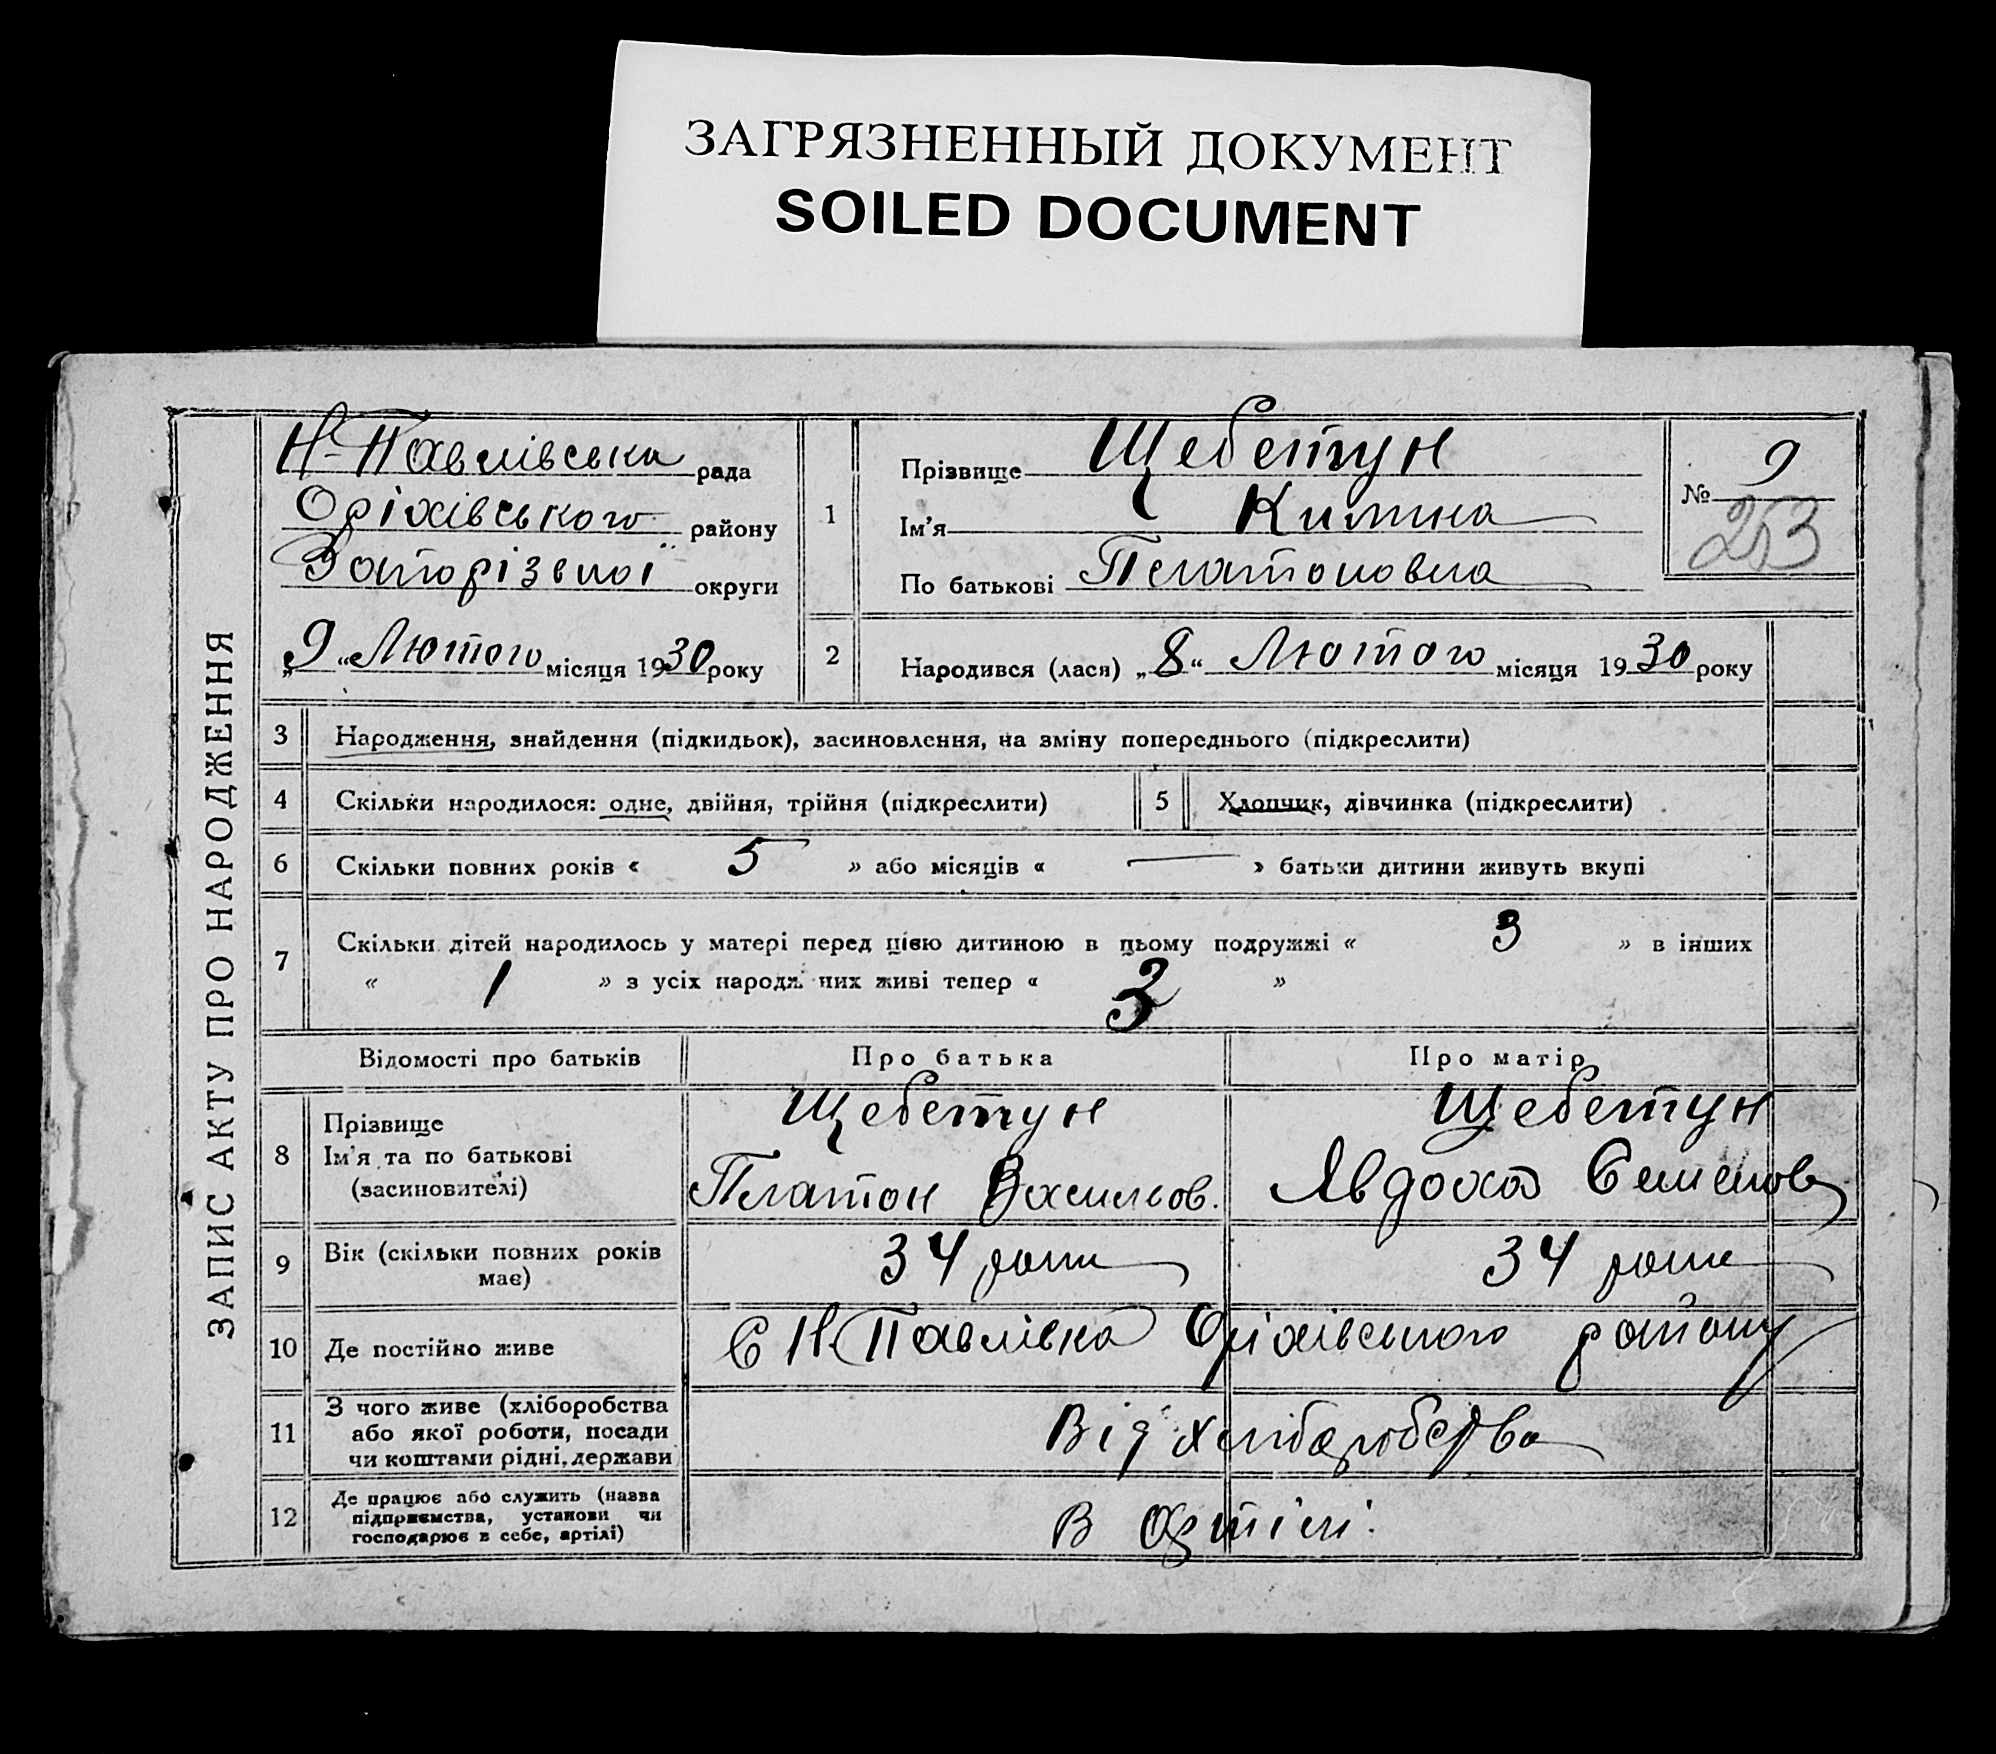 ЗАГРЯЗНЕННЫЙ ДОКУМЕНТ
SOILED DOCUMENT
ЗАПИС АКТУ ПРО НАРОДЖЕННЯ
Н-Павлівська рада
Оріхівського району
Запорізької округи
„9“ Лютого місяця 1930 року
1
Прізвище Щебетун
Ім'я Килина
По батькові Платоновна
№ 9
253
2
Народився (лася) „8“ Лютого місяця 1930 року
3 Народження, знайдення (підкидьок), засиновлення, на зміну попереднього (підкреслити)
4 Скільки народилося: одне, двійня, трійня (підкреслити)
5 Хлопчик, дівчинка (підкреслити)
6 Скільки повних років « 5 » або місяців « — » батьки дитини живуть вкупі
7 Скільки дітей народилось у матері перед цією дитиною в цьому подружжі « 3 » в інших
« 1 » з усіх народж них живі тепер « 3 »
Відомості про батьків Про батька Про матір
8
Прізвище
Ім'я та по батькові
(засиновителі)
Щебетун
Платон Васильов.
Щебетун
Явдоха Семенов
9
Вік (скільки повних років
має)
34 роки
34 роки
10 Де постійно живе
С Н-Павлівка Оріхівського району
11
З чого живе (хліборобства
або якої роботи, посади
чи коштами рідні, держави
Від хліборобства
12
Де працює або служить (назва
підприємства, установи чи
господарює в себе, артілі)
В артілі